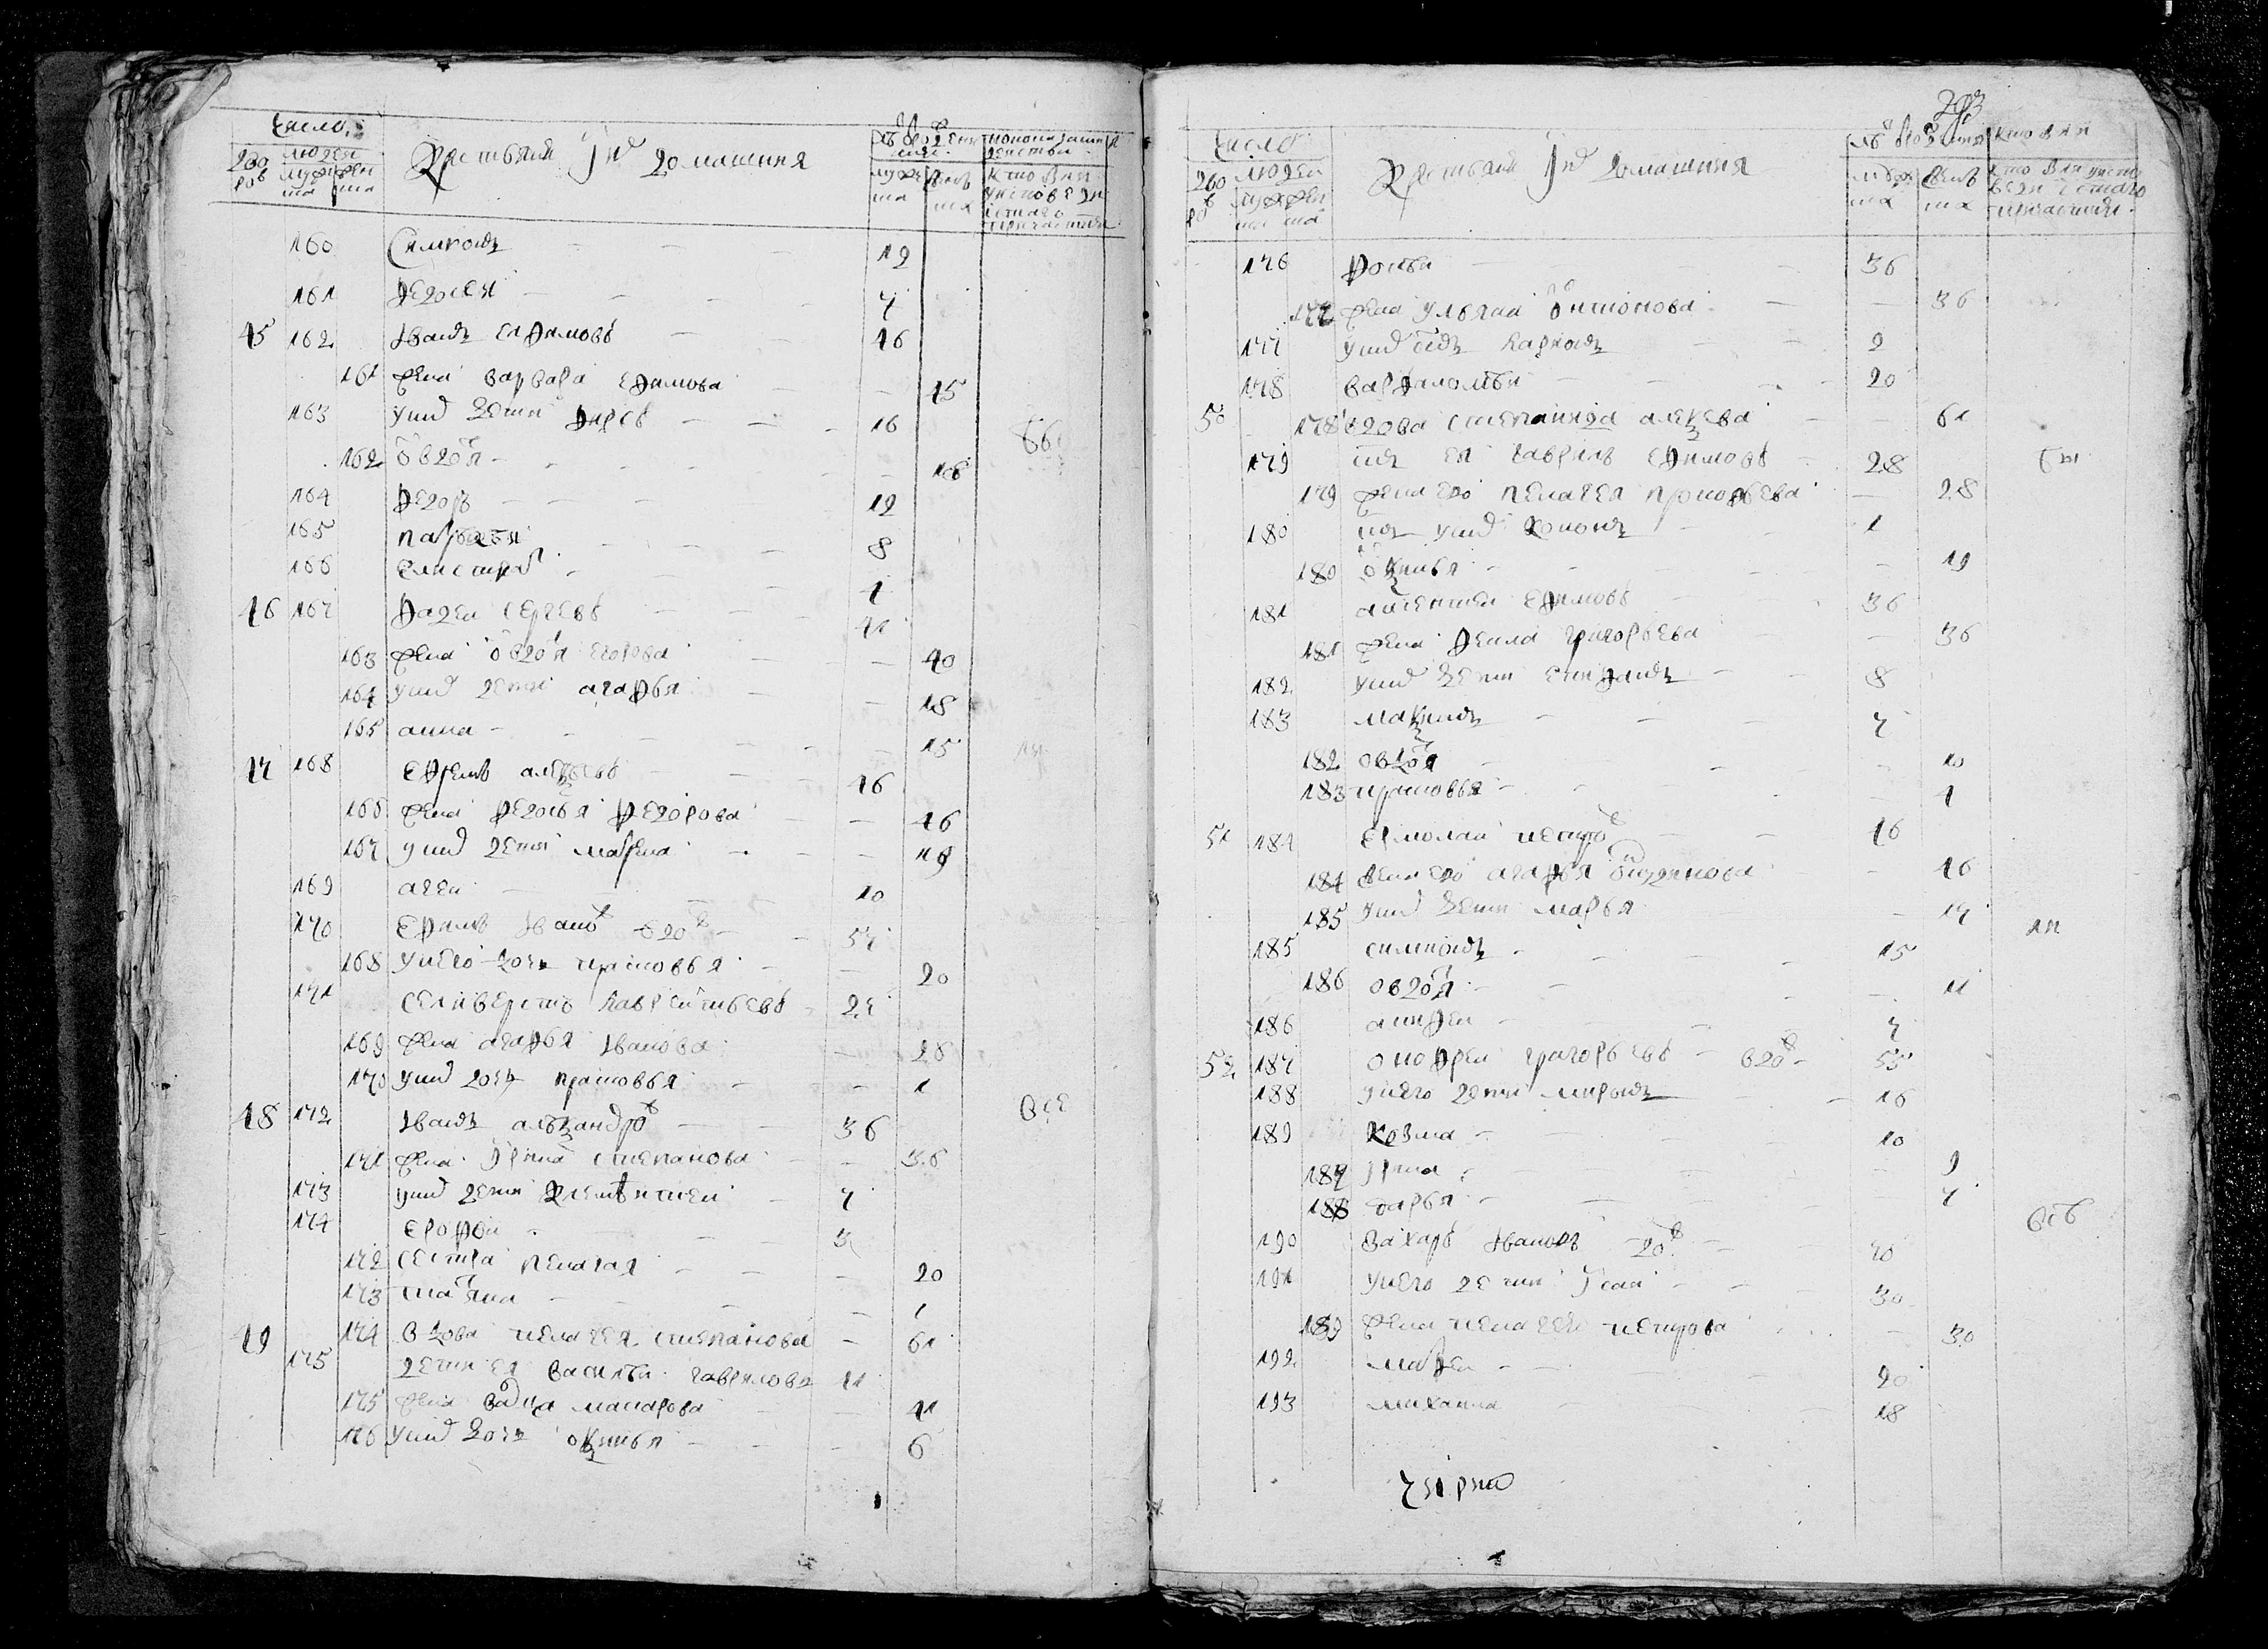 число
дво ров
людей
муже ска
жен ска
Крестьяня Їихъ домашния
лѣтъ от рождения
муже ска
женъ ска
кто был у исповеди и святаго причастия
160 Симионъ 12
161 Федосей 7
45 162 Иванъ Ефимовъ 46
161 жена Варвара Ефимова 45
163 у них дети Фирсъ 16
162 Овдотя 16
164 Федоръ 12
165 パрфеней 8
166 Елистратъ 4
46 167 Фадей Сергевъ 41
163 жена Овдотя Егорова 40
164 у них дети Агафья 18
165 анна 15
47 168 Ефремъ алексѣевъ 46
166 жена Федосья Федорова 46
167 у них дети Марфа 19
169 агей 10
170 Ефимъ Ивановъ вдовъ 57
168 у него дочь прасковья 20
171 Селиверстъ Лаврентьевъ 25
169 жена агафья Иванова 28
170 у них дочь прасковья 1
48 172 Иванъ алѣксандровъ 36
171 жена Ирина степанова 36
173 у них дети Клементей 7
174 Ерофѣй 3
172 сестра пелагая 20
173 татяна 1
49 174 вдова пелагея степанова 61
175 дети ея Василѣй гавриловъ 41
175 жена макарова 41
176 у них дочь оксинья 6
число
дво ров
людей
муже ска
жен ска
Крестьяня Їихъ домашния
лѣтъ от рождения
муже ска
женъ ска
кто был у исповеди и святаго причастия
176 Фока 36
177 жена Ульяна Онтонова 36
177 у них сынъ Ларионъ 2
178 Варфаломѣй 20
50 178 вдова степанида алексева 61
179 сынъ ея гаврилъ Ефимовъ 28
179 жена его пелагея прокофьева 28
180 сынъ у них Кононъ 1
180 Оксинья 19
181 аксентей Ефимовъ 36
181 жена Фекла григорьева 36
182 у них дети Епифанъ 8
183 максимъ 7
182 овдотя 10
183 прасковья 4
51 184 Ермолай петровъ 46
184 жена его агафья 46
185 у них дети марья 17
185 симионъ 15
186 овдотя 11
186 андрей 7
52 187 онофрей григорьевъ вдовъ 55
188 у него дети миронъ 16
189 Козма 10
187 Ирина 9
188 дарья 7
190 Захаръ Ивановъ вдовъ 70
191 у него дети Исай 30
189 жена пелагея петрова 30
192 матфей 20
193 михаила 18